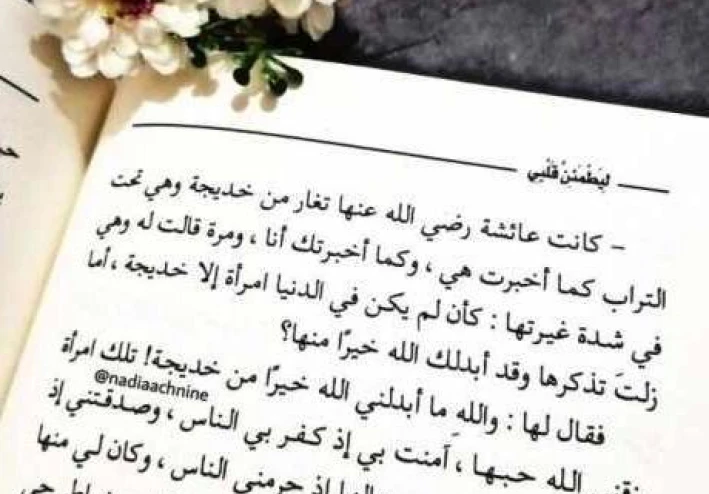 ليطمئن قلبي
– كانت عائشة رضي الله عنها تغار من خديجة وهي تحت
التراب كما أخبرت هي ، وكما أخبرتك أنا ، ومرة قالت له وهي
في شدة غيرتها : كأن لم يكن في الدنيا امرأة إلا خديجة ، أما
زلتَ تذكرها وقد أبدلك الله خيرًا منها؟
فقال لها : واللهِ ما أبدلني الله خيرًا من خديجة! تلك امرأة
الله حبها ، آمنت بي إذ كفر بي الناس ، وصدقتني إذ
إذ حرمني الناس ، وكان لي منها
@nadiaachnine